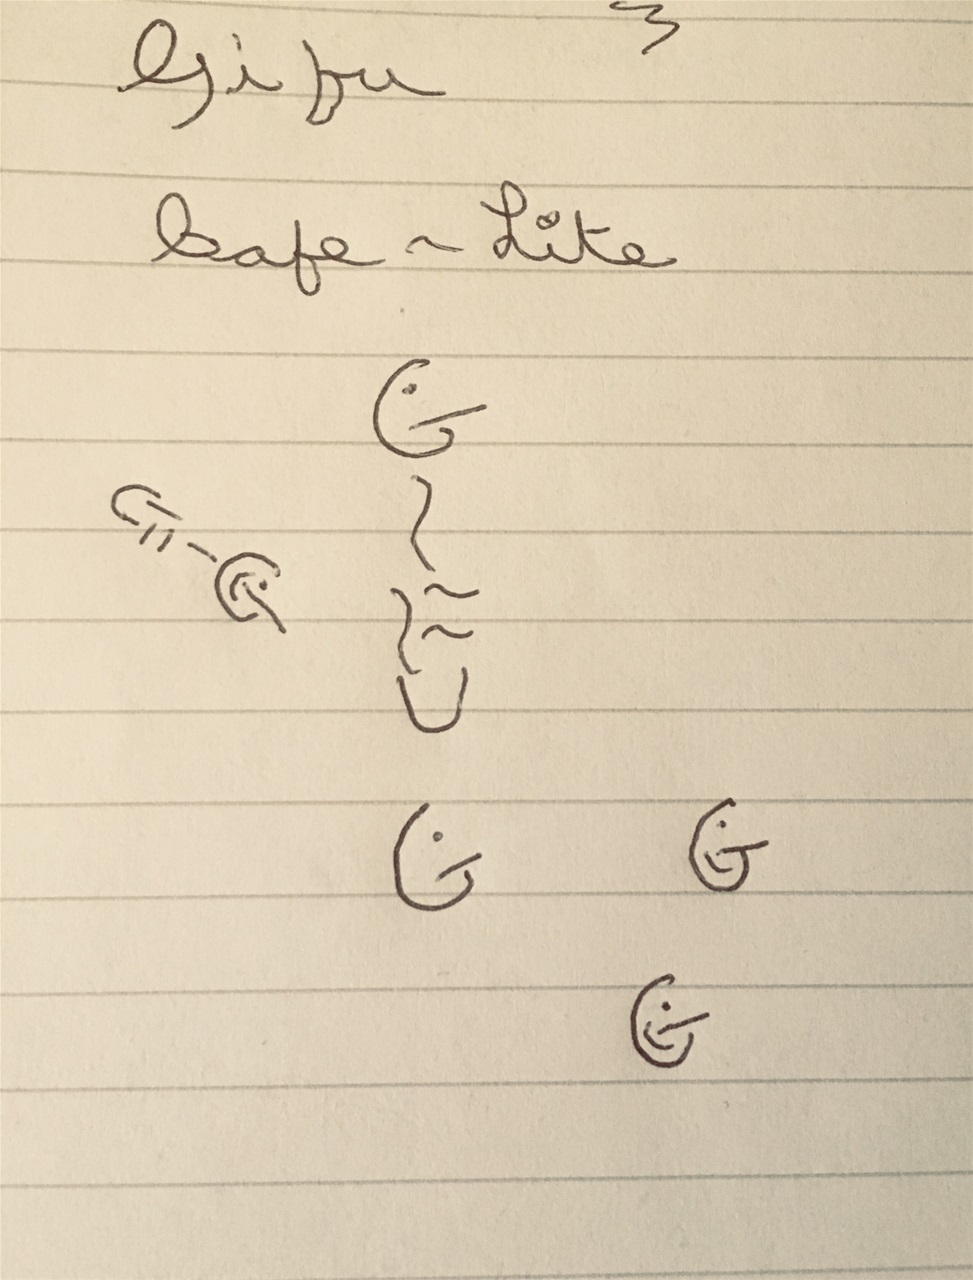 Gifu
Cafe ~ Lite